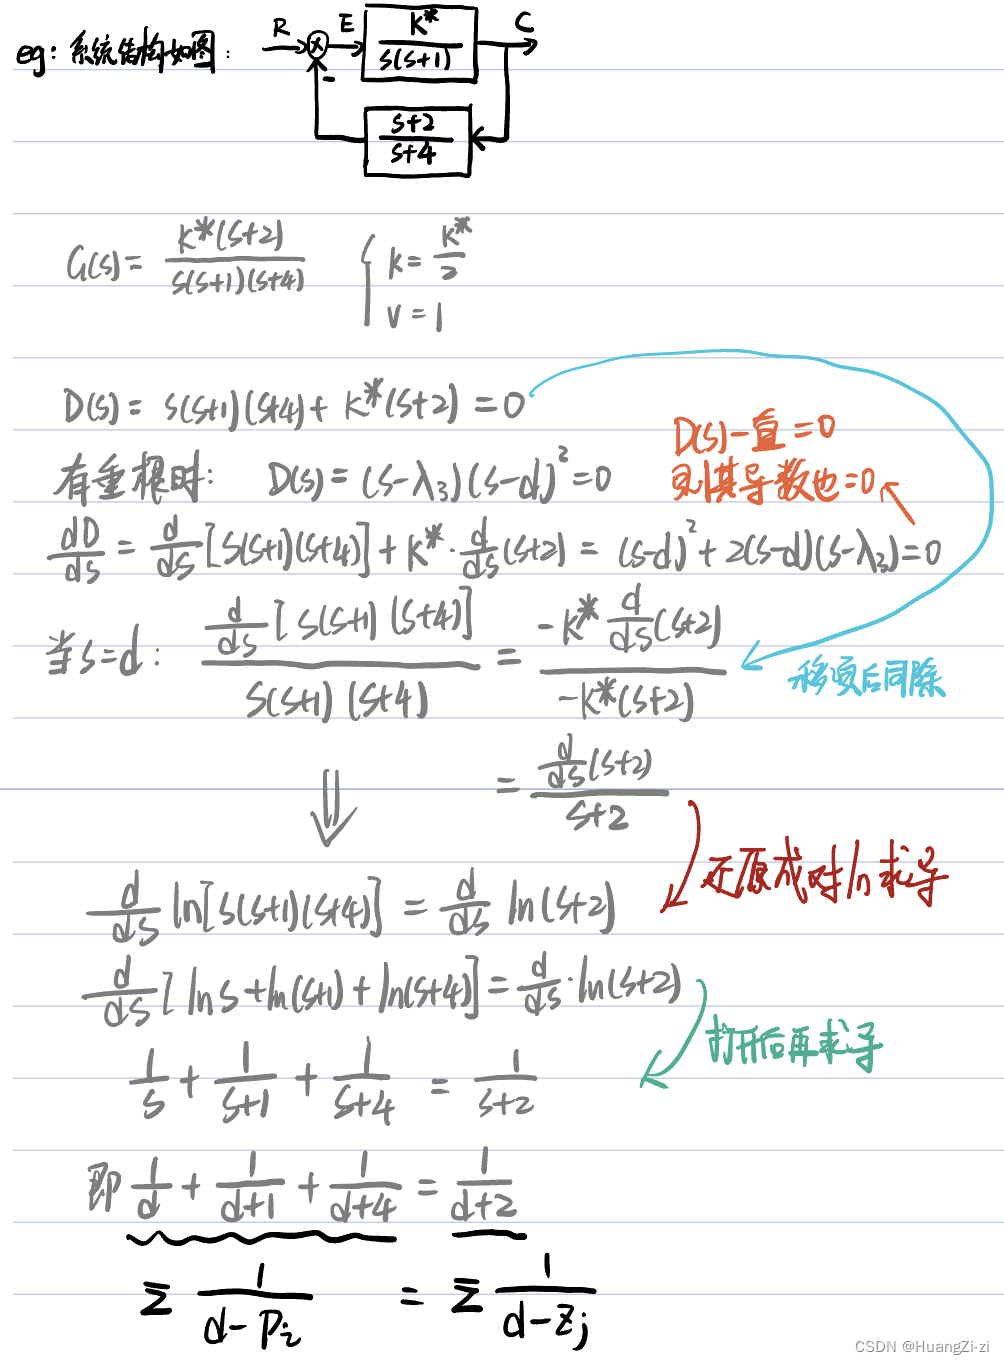 eg: 系统结构如图:
R E K* / s(s+1) C
-
s+2 / s+4
G(s) = K*(s+2) / s(s+1)(s+4) { K = K*/2
v = 1
D(s) = s(s+1)(s+4) + K*(s+2) = 0
D(s)一直=0
有重根时: D(s) = (s-λ₃)(s-d)² = 0
则其导数也=0
dD/ds = d/ds[s(s+1)(s+4)] + K*·d/ds(s+2) = (s-d)² + 2(s-d)(s-λ₃) = 0
当s=d: d/ds[s(s+1)(s+4)] / s(s+1)(s+4) = -K* d/ds(s+2) / -K*(s+2)
移项后同除
= d/ds(s+2) / s+2
⇓
还原成对ln求导
d/ds ln[s(s+1)(s+4)] = d/ds ln(s+2)
d/ds[ln s + ln(s+1) + ln(s+4)] = d/ds·ln(s+2)
打开后再求导
1/s + 1/s+1 + 1/s+4 = 1/s+2
即 1/d + 1/d+1 + 1/d+4 = 1/d+2
Σ 1/d-Pi = Σ 1/d-Zj
CSDN @HuangZi-zi